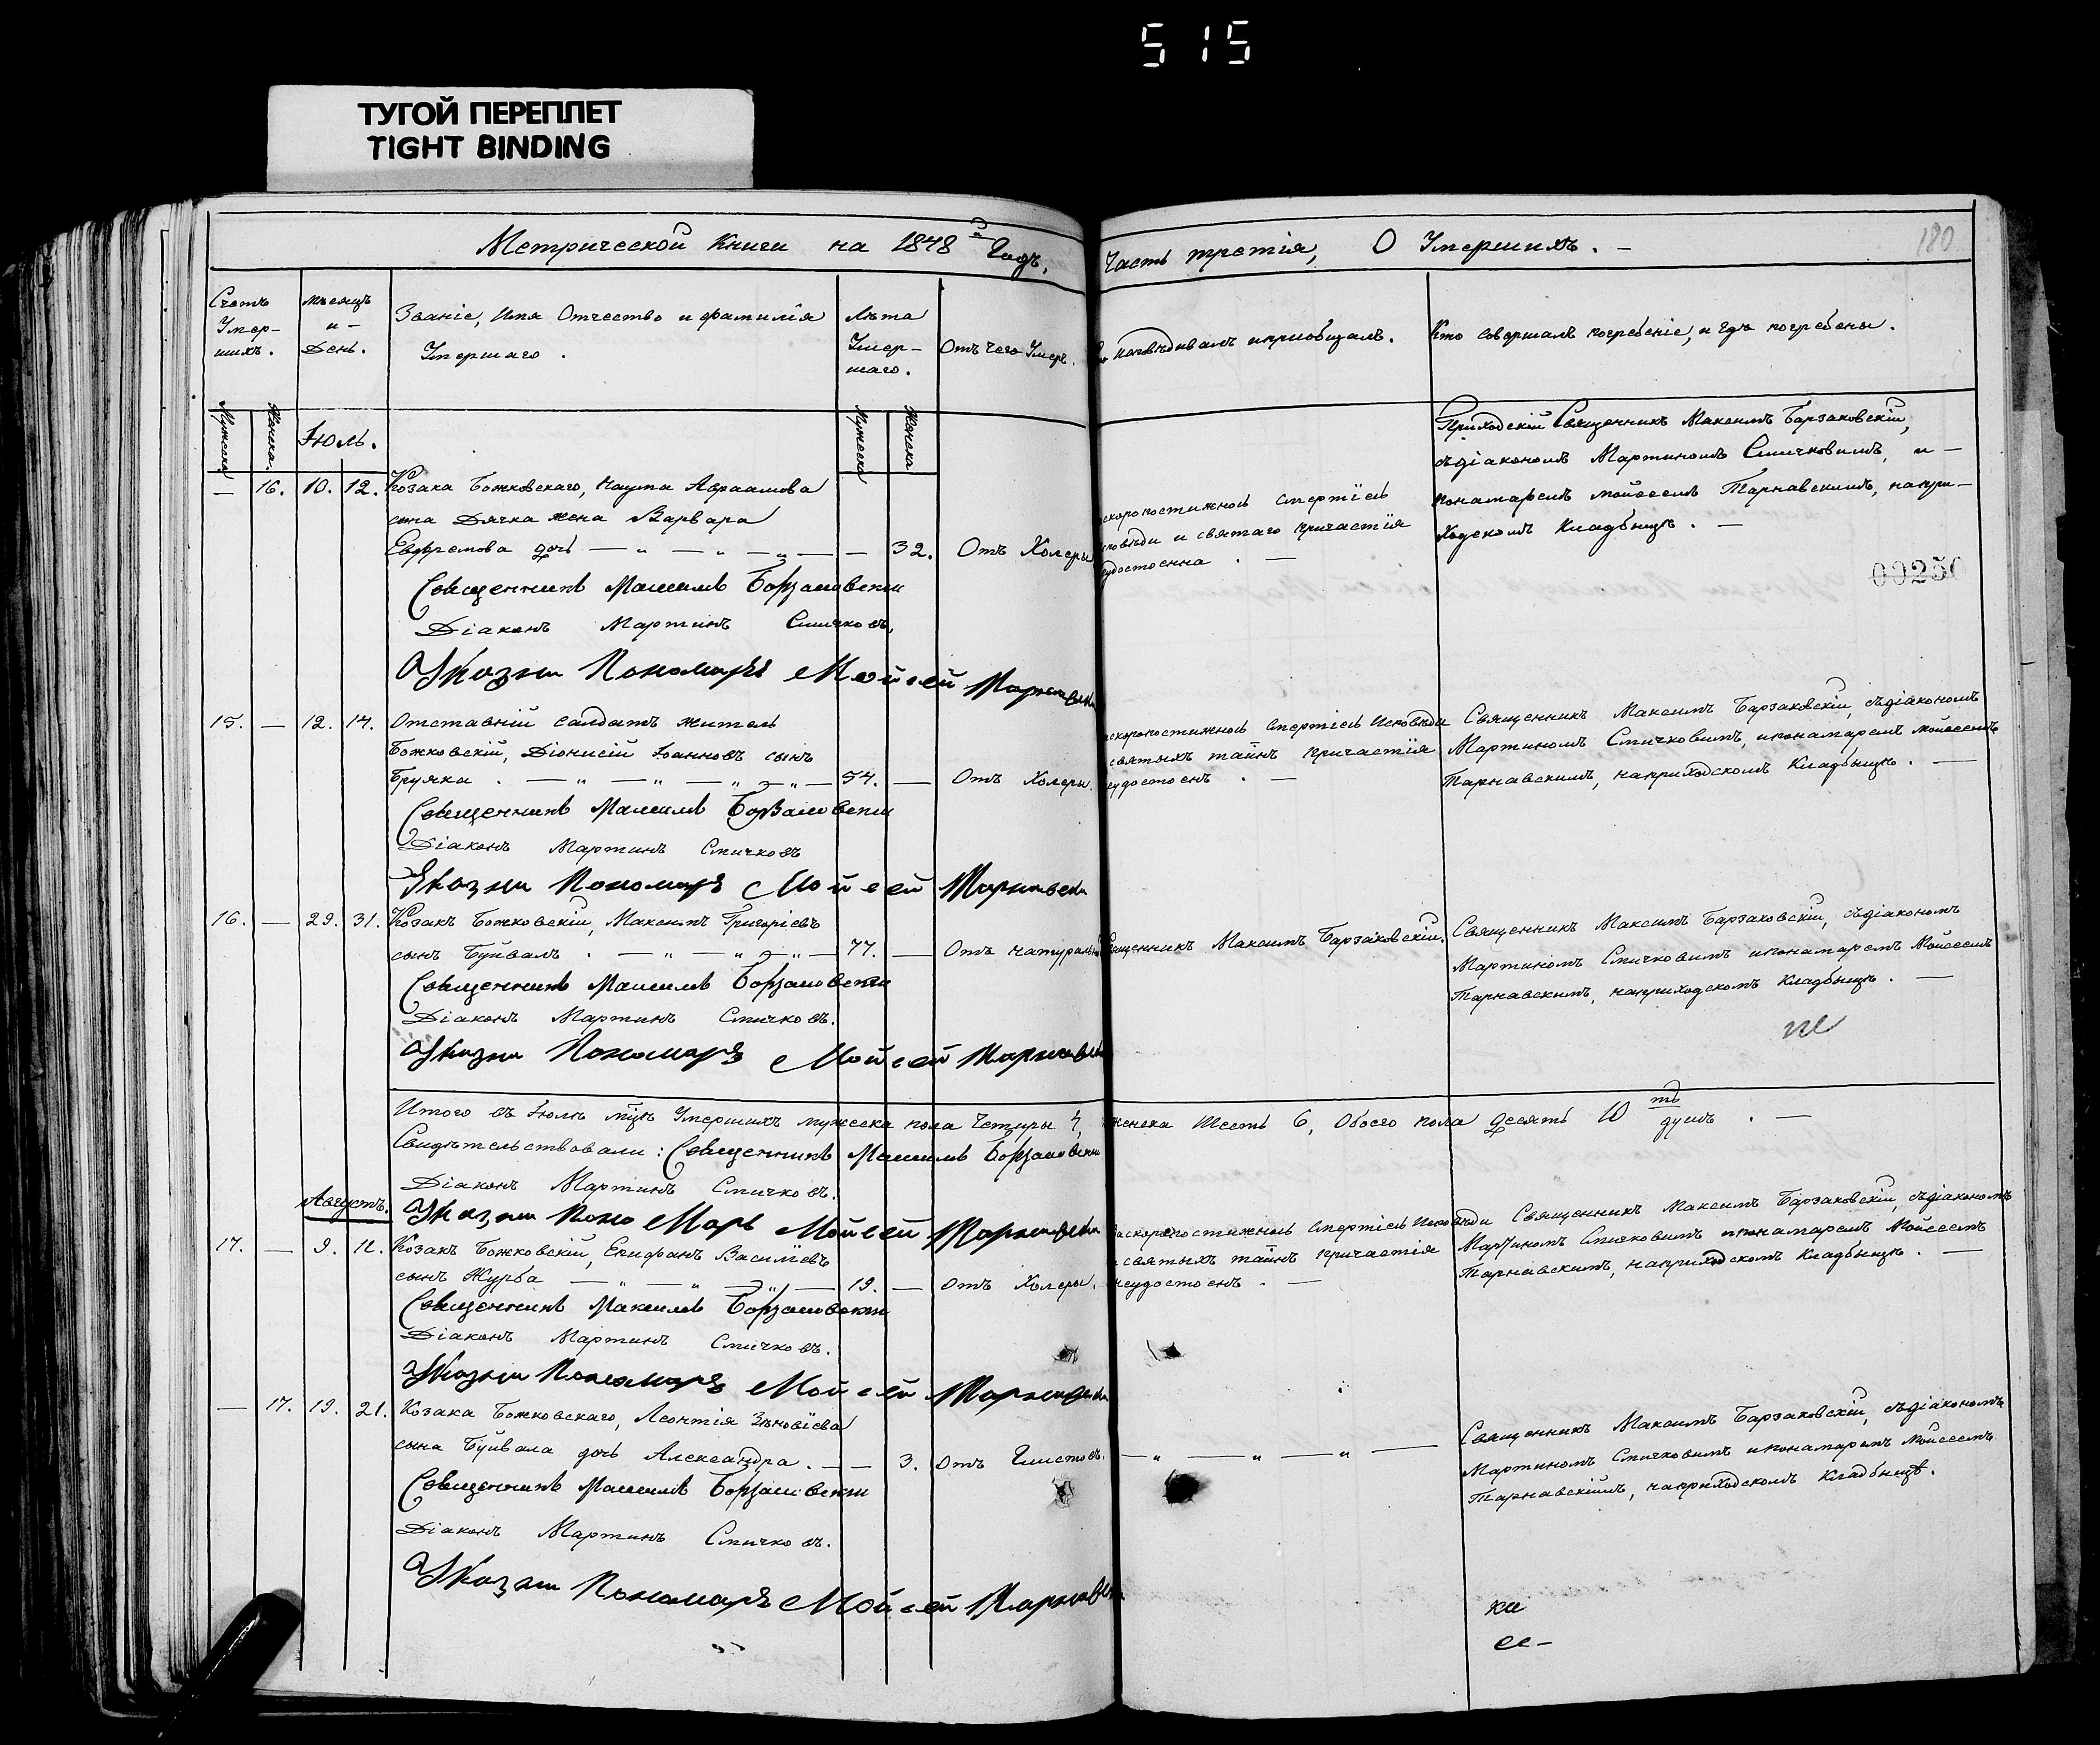 515
ТУГОЙ ПЕРЕПЛЕТ
TIGHT BINDING
Метрической Книги на 1848й Годъ,
Часть третія, О Умершихъ. —
180
Счетъ Умер-
шихъ.
Мѣсяцъ
и -
День.
Званіе, Имя Отчество и фамилія
Умершаго.
Лѣта
Умер-
шаго.
Отъ чего Умеръ.
исповѣдывалъ и приобщалъ.
Кто совершалъ погребеніе, и гдѣ погребены.
Мужеска
Женска.
Іюль.
Мужеска
Женска
— 16. 10. 12. Козака Божковскаго, Наума Авраамова
сына Дячка жена Варвара
Евфремова дочь — „ — „ — „ — — 32. Отъ Холеры
скоропостижной смертію
исповѣди и святаго причастія
неудостоенна. —
Приходскій Священникъ Максимъ Барзаковскій,
съ діакономъ Мартиномъ Смичковимъ, и —
понамаремъ Мойсеемъ Тарнавскимъ, напри-
ходскомъ Кладбищѣ. —
00250
Священникъ Максимъ Борзаковскій
Діаконъ Мартинъ Смичковъ,
Указни Пономаръ Мойсей Тарнавски
15. — 12. 14. Отставній салдатъ житель
Божковскій, Діонисій Іоанновъ сынъ
Бруяка . — „ — „ — „ — „ — 54. — Отъ Холеры.
скоропостижной смертію Исповѣди
святыхъ тайнъ причастія
неудостоенъ . —
Священникъ Максимъ Барзаковскій, съ діакономъ
Мартиномъ Смичковимъ, и понамаремъ Мойсеемъ
Тарнавскимъ, наприходскомъ Кладбищѣ. —
Священникъ Максимъ Борзаковски
Діаконъ Мартинъ Смичковъ
Указни Пономаръ Мойсей Тарнавски
16. — 29. 31. Козакъ Божковскій, Максимъ Григоріевъ
сынъ Буйвалъ . — „ — „ — „ — 77. — Отъ натуральной
Священникъ Максимъ Барзаковскій.
Священникъ Максимъ Барзаковскій, съ діакономъ
Мартиномъ Смичковимъ и понамаремъ Мойсеемъ
Тарнавскимъ, наприходскомъ Кладбищѣ. —
Священникъ Максимъ Борзаковски
Діаконъ Мартинъ Смичковъ.
Указни Пономаръ Мойсей Тарнавски
Итого въ Іюлѣ мцѣ Умершихъ мужеска пола Четыри 4, женска Шесть 6, Обоего пола десять 10ть душъ. —
Свидѣтельствовали: Священникъ Максимъ Борзаковски
Діаконъ Мартинъ Смичковъ.
Указни Пономаръ Мойсей Тарнавски
Августъ.
17. — 9. 12. Козакъ Божковскій, Епифанъ Василіевъ
сынъ Журба — „ — „ — „ — 19. — Отъ Холеры.
заскоропостижной смертію Исповѣди
святыхъ тайнъ причастія
неудостоенъ. —
Священникъ Максимъ Барзаковскій, съ діакономъ
Мартиномъ Смичковимъ и понамаремъ Мойсеемъ
Тарнавскимъ, наприходскомъ Кладбищѣ. —
Священникъ Максимъ Борзаковски
Діаконъ Мартинъ Смичковъ.
Указни Пономаръ Мойсей Тарнавски
— 17. 19. 21. Козака Божковскаго, Леонтія Зѣновіева
сына Буйвала дочь Александра. — — 3. Отъ Глистовъ.
— „ — „ — „ —
Священникъ Максимъ Барзаковскій, съ діакономъ
Мартиномъ Смичковимъ и понамаремъ Мойсеемъ
Тарнавскіимъ, наприходскомъ Кладбищѣ.
Священникъ Максимъ Борзаковски
Діаконъ Мартинъ Смичковъ.
Указни Пономаръ Мойсей Тарнавски